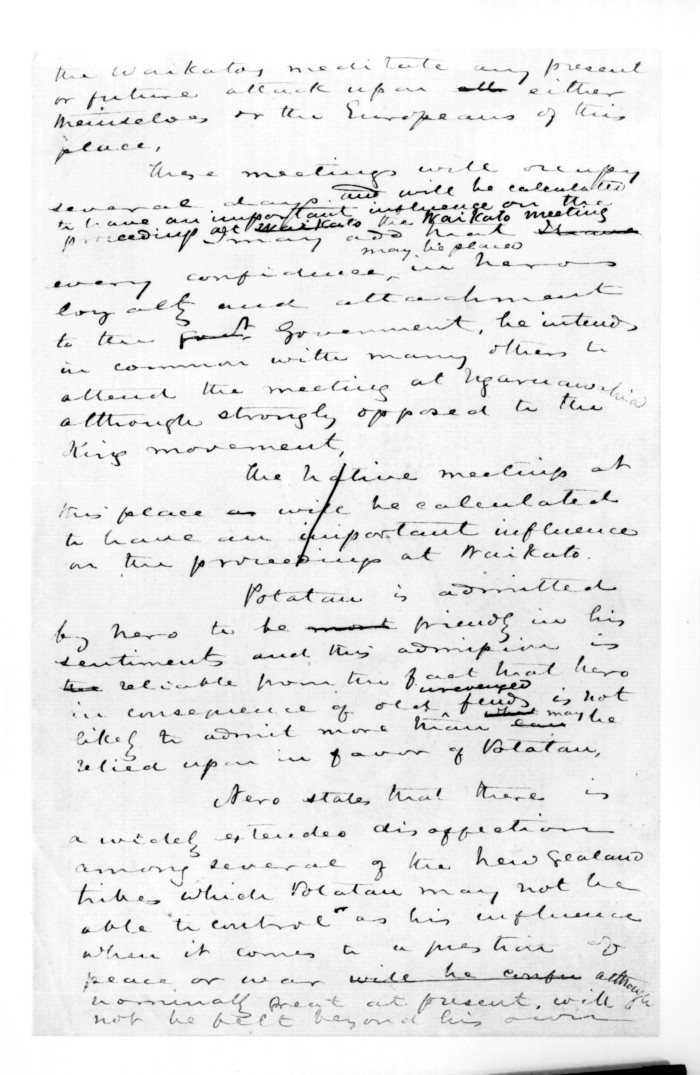 the Waikatos meditate any present
or future attack upon either
themselves or the Europeans of this
place,
These meetings will occupy
several days and will be calculated
to have an important influence on the
proceedings at Waikato the Waikato meeting
I may add that I have
may be placed
every confidence, in heros
loyalty and attachment
to the Govt Government, he intends
in common with many others to
attend the meeting at Ngaruawahia
although strongly opposed to the
King movement,
The Native meetings at
this place as will be calculated
to have an important influence
on the proceedings at Waikato.
Potatau is admitted
by hero to be most friendly in his
sentiments and this admission is
the reliable from the fact that hero
unrevenged
in consequence of old feuds is not
likely to admit more than what can may be
relied upon in favor of Potatau,
Nero states that there is
a widely extended disaffection
among several of the New Zealand
tribes which Potatau may not be
able to control as his influence
when it comes to a question of
peace or war will be confin although
nominally great at present, will
not be felt beyond his own